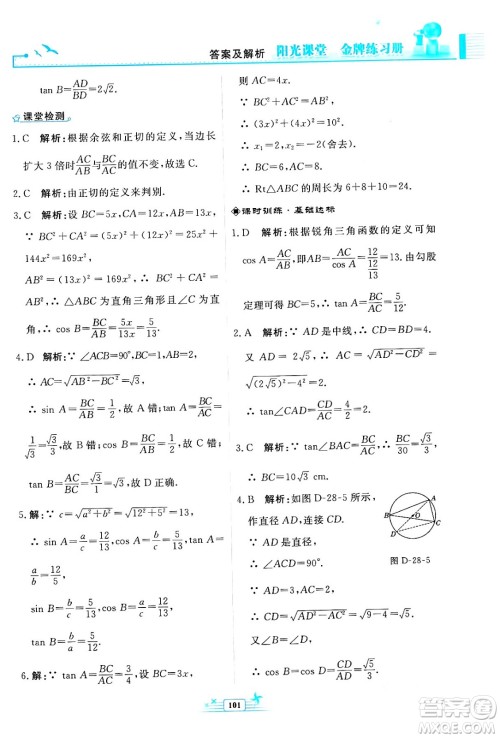 答案及解析 阳光课堂 金牌练习册
tan B=AD/BD=2√2.
课堂检测
1. C 解析:根据余弦和正切的定义,当边长
扩大 3 倍时AC/AB与BC/AC的值不变,故选 C.
2. C 解析:由正切的定义来判别.
3. C 解析:设 BC=5x,CA=12x,AB=13x,
∵ BC²+CA²=(5x)²+(12x)²=25x²+
144x²=169x²,
AB²=(13x)²=169x²,∴ BC²+CA²=
AB²,∴ △ABC 为直角三角形,∠C 为直
角,∴ cos B=BC/AB=5x/13x=5/13.
4. D 解析:∵ ∠ACB=90°,BC=1,AB=2,
∴ AC=√(AB²-BC²)=√(2²-1²)=√3,
∴ sin A=BC/AB=1/2,故 A 错;tan A=BC/AC=
1/√3=√3/3,故 B 错;cos B=BC/AB=1/2,故 C 错;
tan B=AC/BC=√3,故 D 正确.
5. 解:∵ c=√(a²+b²)=√(12²+5²)=13,
∴ sin A=a/c=12/13,cos A=b/c=5/13,tan A=
a/b=12/5.
sin B=b/c=5/13,cos B=a/c=12/13,
tan B=b/a=5/12.
6. 解:∵ tan A=BC/AC=3/4,设 BC=3x,
则 AC=4x.
∵ BC²+AC²=AB²,
∴ (3x)²+(4x)²=10²,
∴ x₁=2,x₂=-2(舍去).
∴ BC=6,AC=8.
∴ Rt△ABC 的周长为 6+8+10=24.
课时训练·基础达标
1. D 解析:根据锐角三角函数的定义可知
cos A=AC/AB,即AC/AB=12/13,∴ AC=12.由勾股
定理可得 BC=5,∴ tan A=BC/AC=5/12.
2. A 解析:∵ AD 是中线,∴ CD=2.
又 ∵ AD=2√5,∴ AC=√(AD²-CD²)
=√((2√5)²-2²)=4.
∴ tan∠CAD=CD/AC=2/4=1/2.
3. C 解析:∵ tan∠BAC=BC/AC,∴ BC/30=√3/3,
∴ BC=10√3 cm.
4. B 解析:如图 D-28-5,
作直径 AD,连接 CD.
∵ AD 是直径,
图 D-28-5
∴ ∠ACD=90°,
∴ CD
=√(AD²-AC²)=√(9-4)=√5.
又∵ ∠B=∠D,
∴ cos B=cos D=CD/AD=√5/3.
101
答案圈